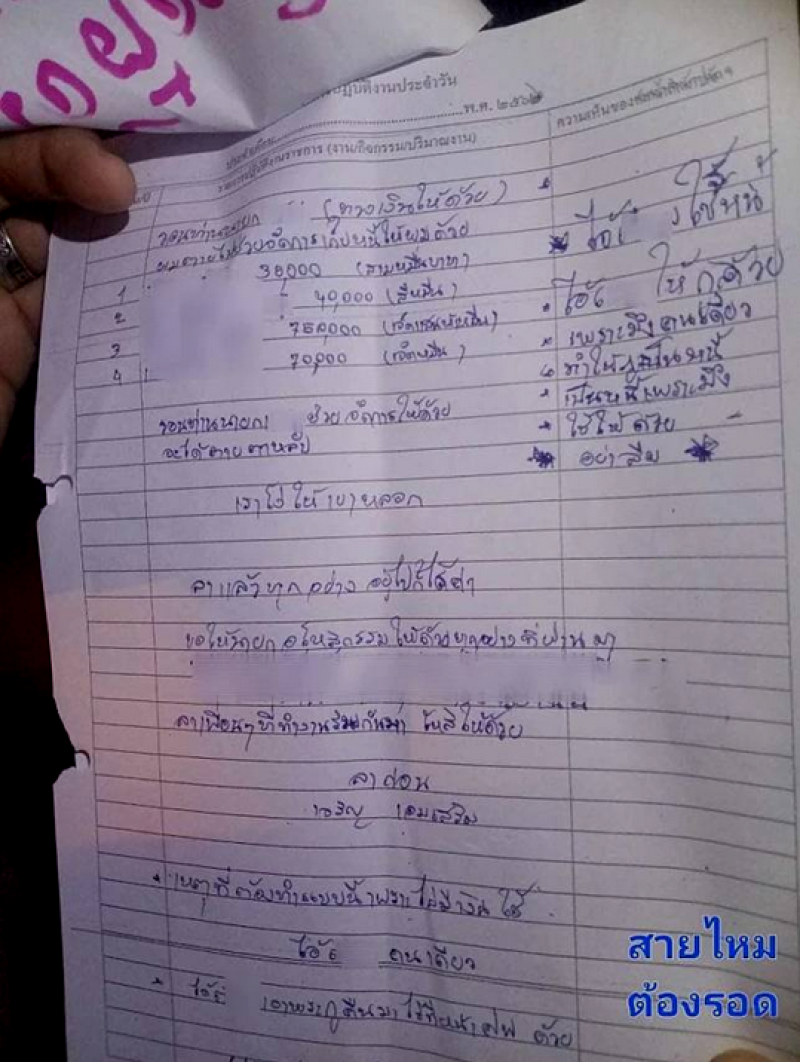 ปฏิบัติงานประจำวัน
พ.ศ. ๒๕๖๒
(งาน/กิจกรรม/ปริมาณงาน)
วอนท่านนายก (ทวงเงินให้ด้วย)
ช่วยจัดการเก็บหนี้ให้ผมด้วย
30,000 (สามหมื่นบาท)
1 40,000 (สี่หมื่น)
2 750,000 (เจ็ดแสนห้าหมื่น)
3 70,000 (เจ็ดหมื่น)
4
วอนท่านนายก ช่วยจัดการให้ด้วย
จะได้ตายตาหลับ
ใช้หนี้
ให้กูด้วย
เพราะมึงคนเดียว
ทำให้กูเป็นหนี้
เป็นหนี้เพราะมึง
ใช้ให้ด้วย
อย่าลืม
เราโง่ให้เขาหลอก
ลาแล้วทุกอย่าง อยู่ไปก็ไร้ค่า
ขอให้นายกอโหสิกรรมให้ด้วยทุกอย่างที่ผ่านมา
ลาเพื่อนๆที่ทำงานร่วมกันมา โหสิให้ด้วย
ลาก่อน
เจริญ
เหตุที่ต้องทำแบบนี้เพราะไม่มีเงินใช้
คนเดียว
เอาพระกูคืนมาไว้ที่หน้าศพด้วย
สายไหม
ต้องรอด